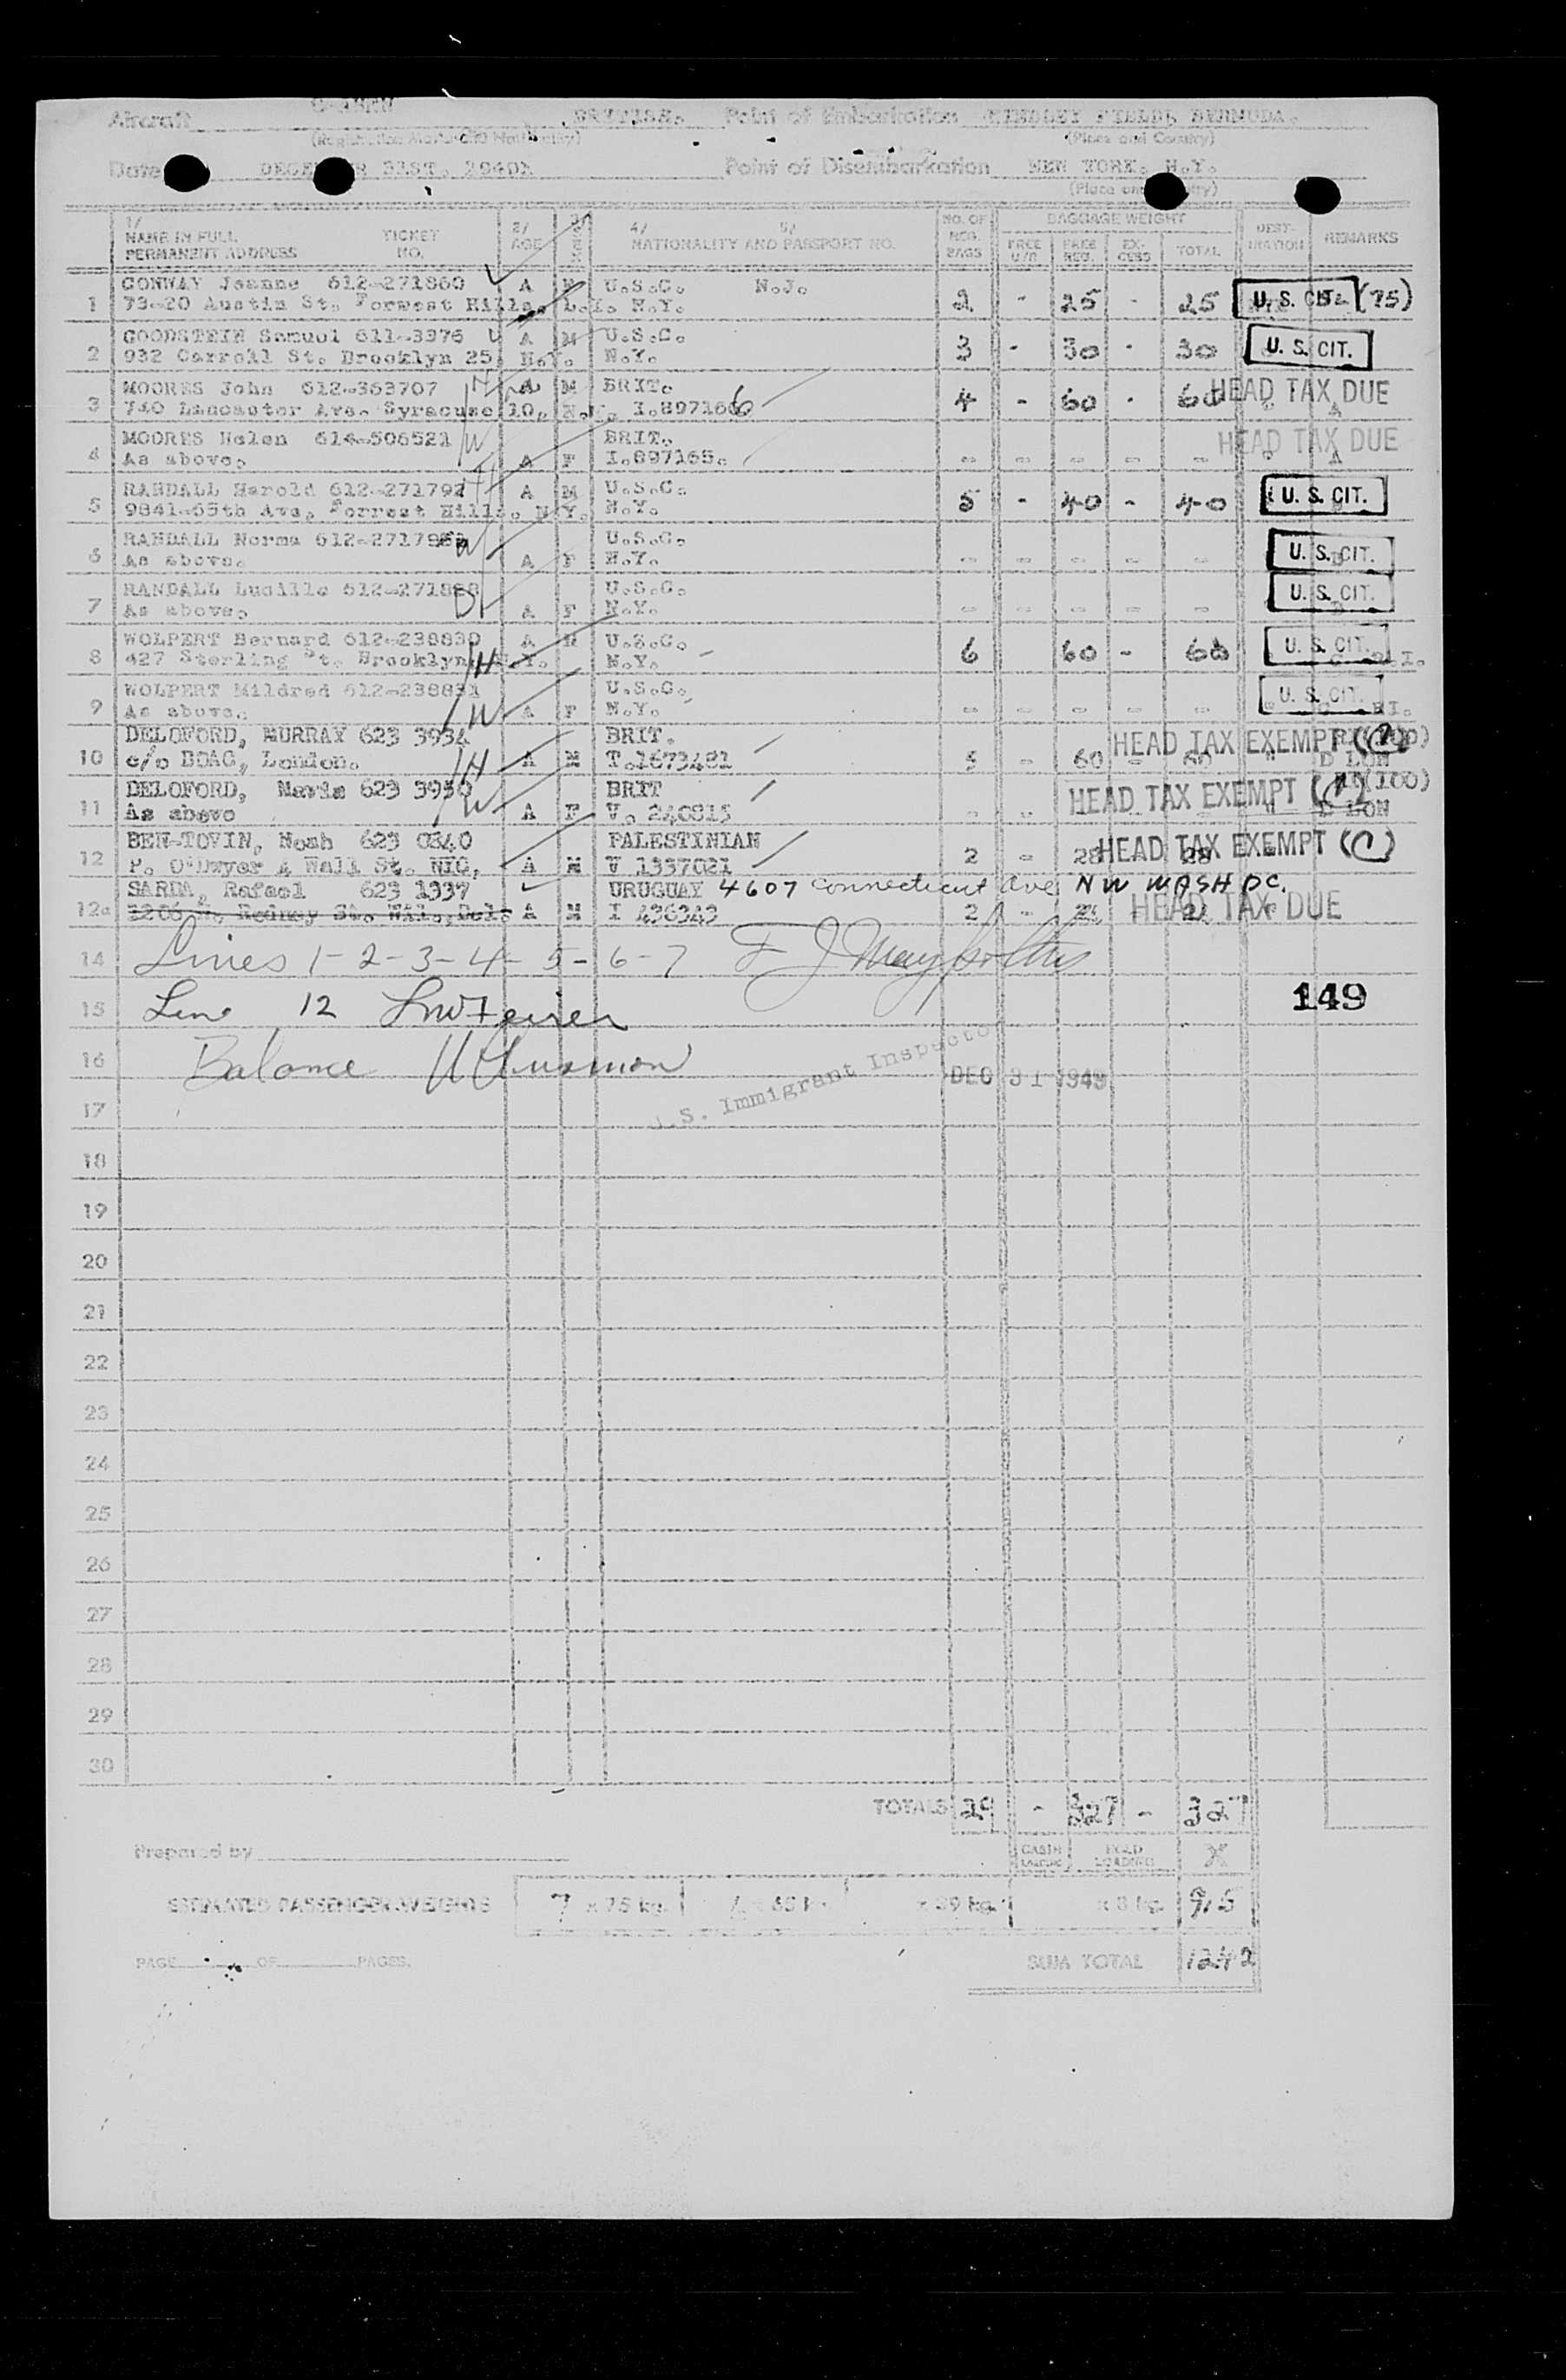 Aircraft BRITISH. Point of Embarkation KINDLEY FIELD, BERMUDA.
(Place and Country)
Date DECEMBER 31ST. Point of Disembarkation NEW YORK. N.Y.
1/ NAME IN FULL TICKET 2/ AGE 3/ SEX 4/ 5/ NO. OF REG. BAGS BAGGAGE WEIGHT DEST- INATION REMARKS
PERMANENT ADDRESS NO. NATIONALITY AND PASSPORT NO. FREE U/A FREE REG. EX- CESS TOTAL
CONWAY Jeanne 612-271860 A F U.S.C. N.J.
1 73-20 Austin St. Forrest Hills, L.I. N.Y. 2 - 25 - 25 U. S. CIT. (75)
GOODSTEIN Samuel 611-3376 A M U.S.C.
2 932 Carroll St. Brooklyn 25, N.Y. N.Y. 3 - 30 - 30 U. S. CIT.
MOORES John 612-363707 H A M BRIT.
3 740 Lancaster Ave. Syracuse 10, N.Y. I.897166 4 - 60 - 60 HEAD TAX DUE
MOORES Helen 614-506521 W BRIT.
4 As above. A F I.897165. - - - - - HEAD TAX DUE
RANDALL Harold 612-271792 H A M U.S.C.
5 9841-65th Ave, Forrest Hills, N.Y. N.Y. 5 - 40 - 40 U. S. CIT.
RANDALL Norma W U.S.C.
6 As above. A F N.Y. - - - - - U. S. CIT.
RANDALL Lucille D U.S.C.
7 As above. A F N.Y. - - - - - U. S. CIT.
WOLPERT Bernard 612-238830 A M U.S.C.
8 427 Sterling St. Brooklyn, N.Y. H N.Y. 6 60 - 60 U. S. CIT.
WOLPERT Mildred 612-238831 U.S.C.
9 As above. W A F N.Y. - - - - - U. S. CIT.
DELOFORD, MURRAY 623 3934 BRIT.
10 c/o BOAC, London. H A M T.1673481 5 - 60 - 60 HEAD TAX EXEMPT D LON
DELOFORD, Mavis 623 3950 BRIT
11 As above W A F V. 240815 - - HEAD TAX EXEMPT (100) D LON
BEN-TOVIN, Noah 623 0840 PALESTINIAN
12 P. O'Dwyer 4 Wall St. NYC, A M V 1337021 2 - 28 28 HEAD TAX EXEMPT (C)
SARDA, Rafael 623 1937 URUGUAY 4607 connecticut ave NW WASH DC.
12a 1206 N. Rodney St. Wil., Del. A M I 436343 2 - 24 24 HEAD TAX DUE
14 Lines 1-2-3-4-5-6-7
149
15 Line 12
16 Balance
U.S. Immigrant Inspector DEC 31 1949
17
18
19
20
21
22
23
24
25
26
27
28
29
30
TOTALS 29 - 327 - 327
Prepared by CABIN LOADING HOLD LOADING
ESTIMATED PASSENGER WEIGHTS 7 x 75 kg. x 65 kg x 39 kg. x 8 kg. 915
PAGE OF PAGES. SUM TOTAL 1242